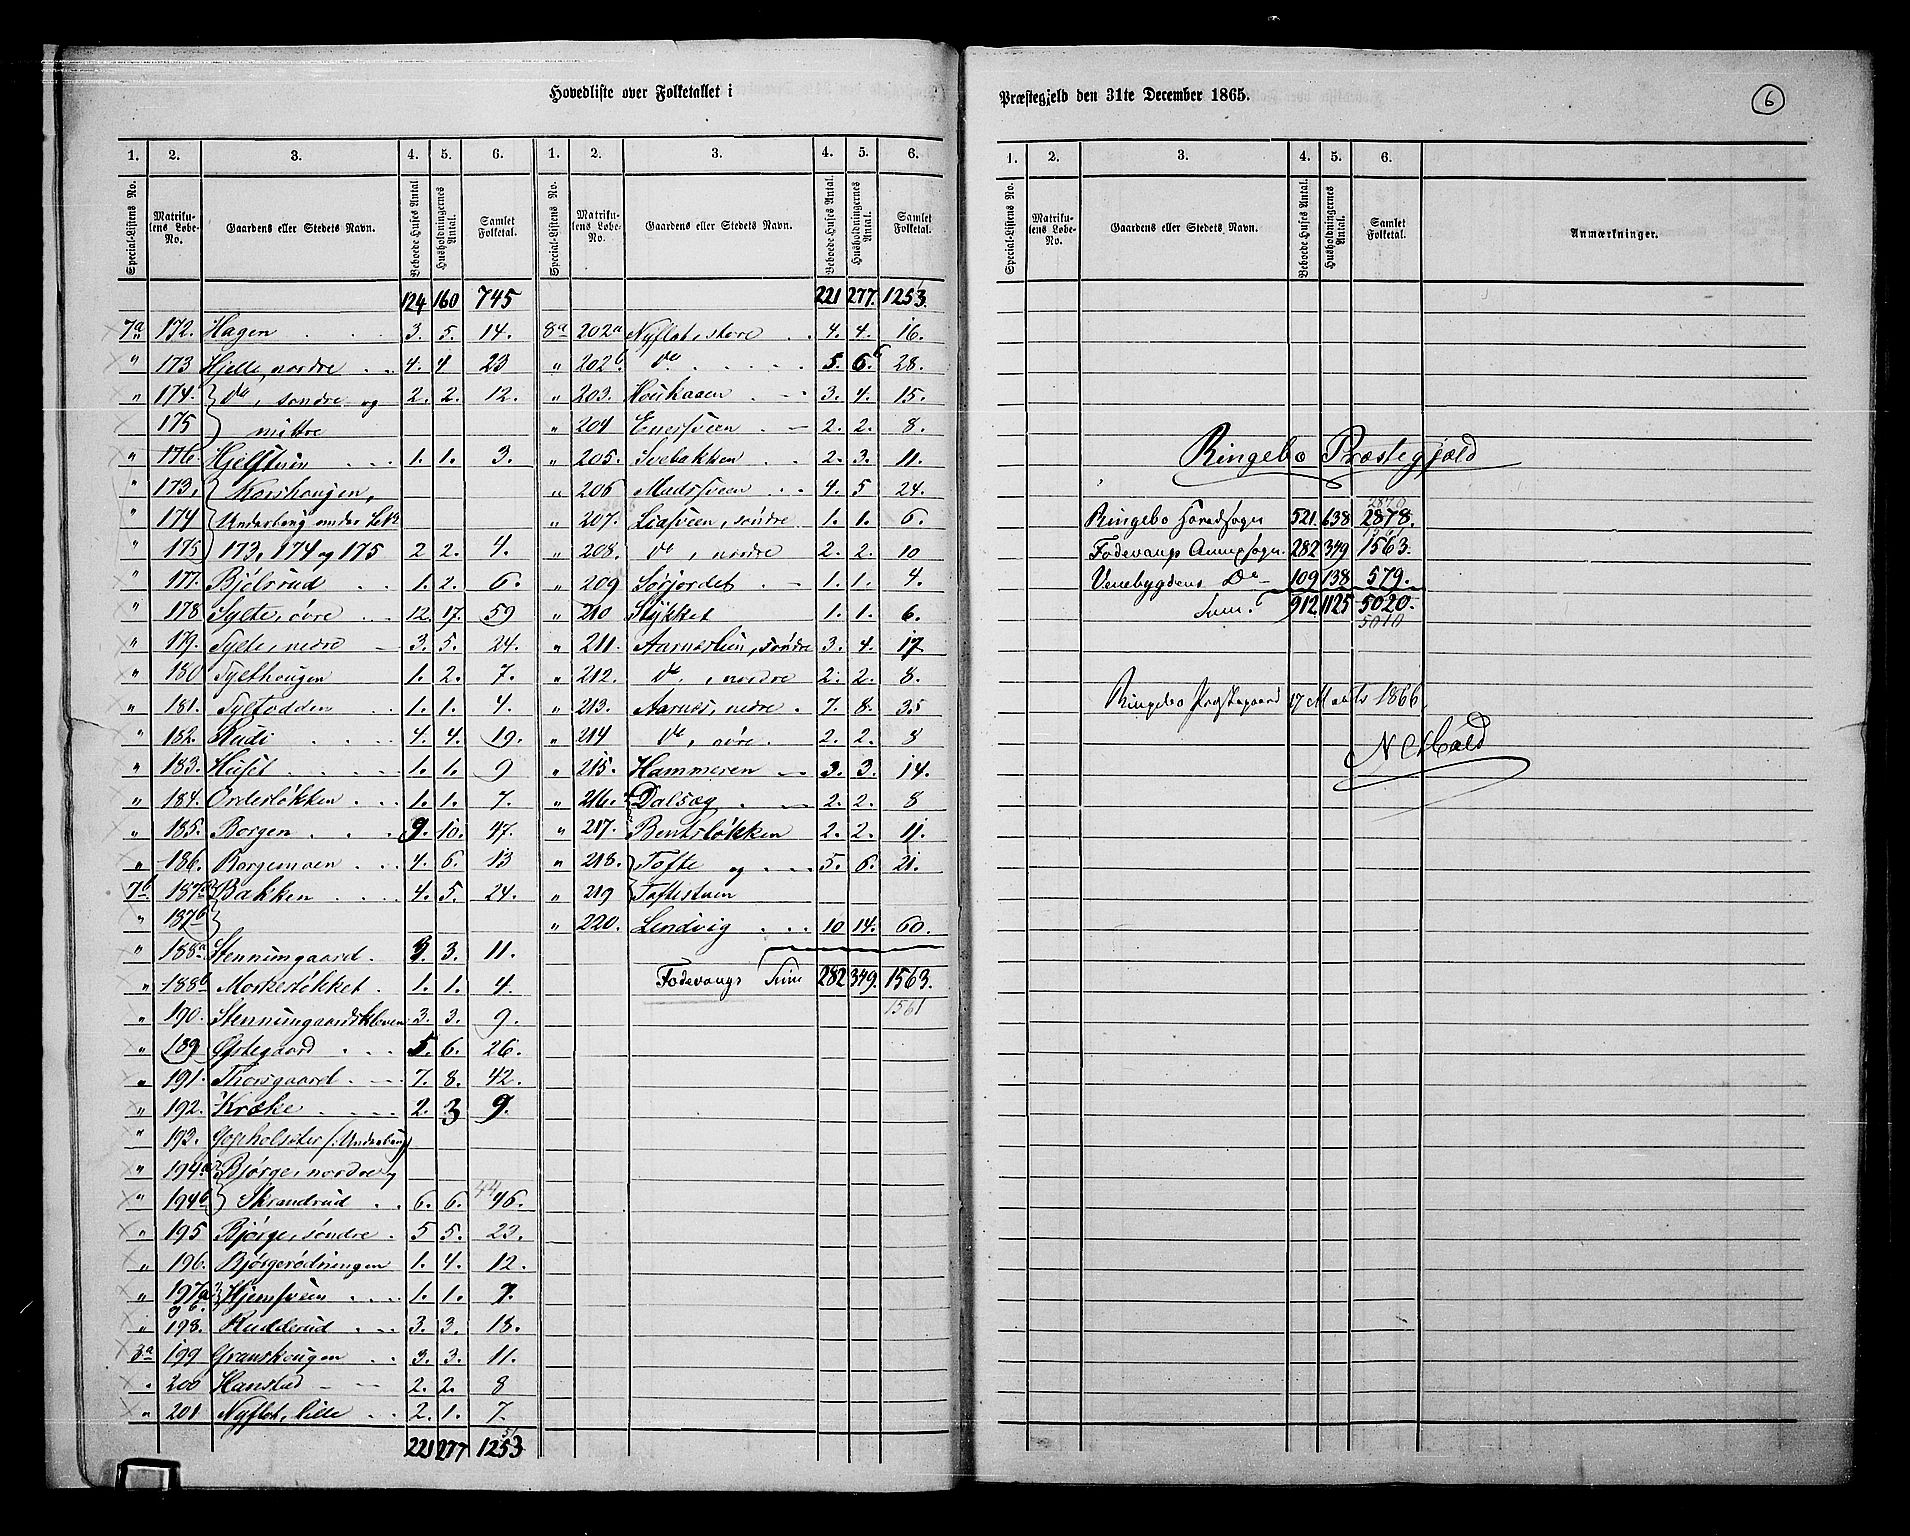 Hovedliste over Folketallet i
1. 2. 3. 4. 5. 6.
Special-Listens No. Matrikulens Løbe-No. Gaardens eller Stedets Navn. Beboede Huses Antal. Husholdningernes Antal. Samlet Folketal.
124 160 745
7a 172. Hagen 3. 5. 14.
" 173 Hjelle, nordre 4. 4 23
" 174. do, søndre og 2. 2. 12.
175 mittre
" 176. Hjelstuen 1. 1. 3.
" 173. Korshougen,
" 174 Underbrug under L.No
" 175 173, 174 og 175 2 2. 4.
" 177. Bjølsrud 1. 2. 6.
" 178 Sylte, øvre 12. 17. 59
" 179. Sylte, nedre 3. 5. 24.
" 180 Sylthougen 1. 2. 7.
" 181. Syltodden 1. 1. 4.
" 182. Rudi 4. 4. 19.
" 183. Huset 1. 1. 9
" 184. Ordesløkken 1. 1. 7.
" 185. Borgen 9. 10. 47.
" 186. Borgemoen 4. 6. 13
7b 187a Bakken 4. 5. 24.
" 187b
" 188a Stenumgaard 3. 3. 11.
" 188b Moskesløkket 1. 1. 4
" 190. Stenumgaardskleven 3. 3. 9.
" 189 Østegaard 5. 6. 26.
" 191. Thorsgaard 7. 8. 42.
" 192. Kræke 2. 3 9.
" 193. Gopeholseter (: Underbrug)
" 194a Bjørge, nordre og
" 194b Skrandrud 6. 6. 44 46.
" 195 Bjørge, søndre 5 5. 23.
" 196. Bjørgerødningen 1. 4. 12.
" 197a Hjemsveen 1. 1. 7.
" 198. Rudderud 3. 3. 18.
8a 199 Granshougen 3. 3. 11.
" 200 Hanstad 2. 2. 8
" 201 Nyflot, lille 2. 1. 7.
221 277 1253
1. 2. 3. 4. 5. 6.
Special-Listens No. Matrikulens Løbe-No. Gaardens eller Stedets Navn. Beboede Huses Antal. Husholdningernes Antal. Samlet Folketal.
221 277. 1253.
8a 202a Nyflot, store 4. 4. 16.
" 202b do 5. 6. 28.
" 203. Houkaaen 3. 4. 15.
" 204 Enersveen 2. 2. 8.
" 205. Svebakken 2. 3. 11.
" 206 Madssveen 4. 5 24.
" 207. Liasveen, søndre 1. 1. 6.
" 208. do, nordre 2. 2. 10
" 209 Sørjordet 1. 1. 4.
" 210 Stykket 1. 1. 6.
" 211. Aarneslien, søndre 3. 4. 17
" 212. do, nordre 2. 2. 8.
" 213. Aarnes, nedre 7. 8. 35
" 214 do, øvre. 2. 2. 8
" 215. Hammeren 3. 3. 14.
" 216. Dalsæg 2. 2. 8
" 217. Bentsløkken 2. 2. 11.
" 218. Tofte og 5. 6. 21.
" 219 Toftestuen
" 220. Lendvig 10 14. 60.
Fodevangs Sum 282 349. 1563.
1561
Præstegjeld den 31te December 1865.
6
1. 2. 3. 4. 5. 6.
Special-Listens No. Matrikulens Løbe-No. Gaardens eller Stedets Navn. Beboede Huses Antal. Husholdningernes Antal. Samlet Folketal. Anmærkninger.
Ringebo Præstegjæld
Ringebo Hovedsogn 521. 638 2878.
Fodevangs Annexsogn. 282 349 1563.
Venebygdens Do 109 138 579.
Sum. 912 1125 5020.
5010
Ringebo Præstegaard 17 Marts 1866.